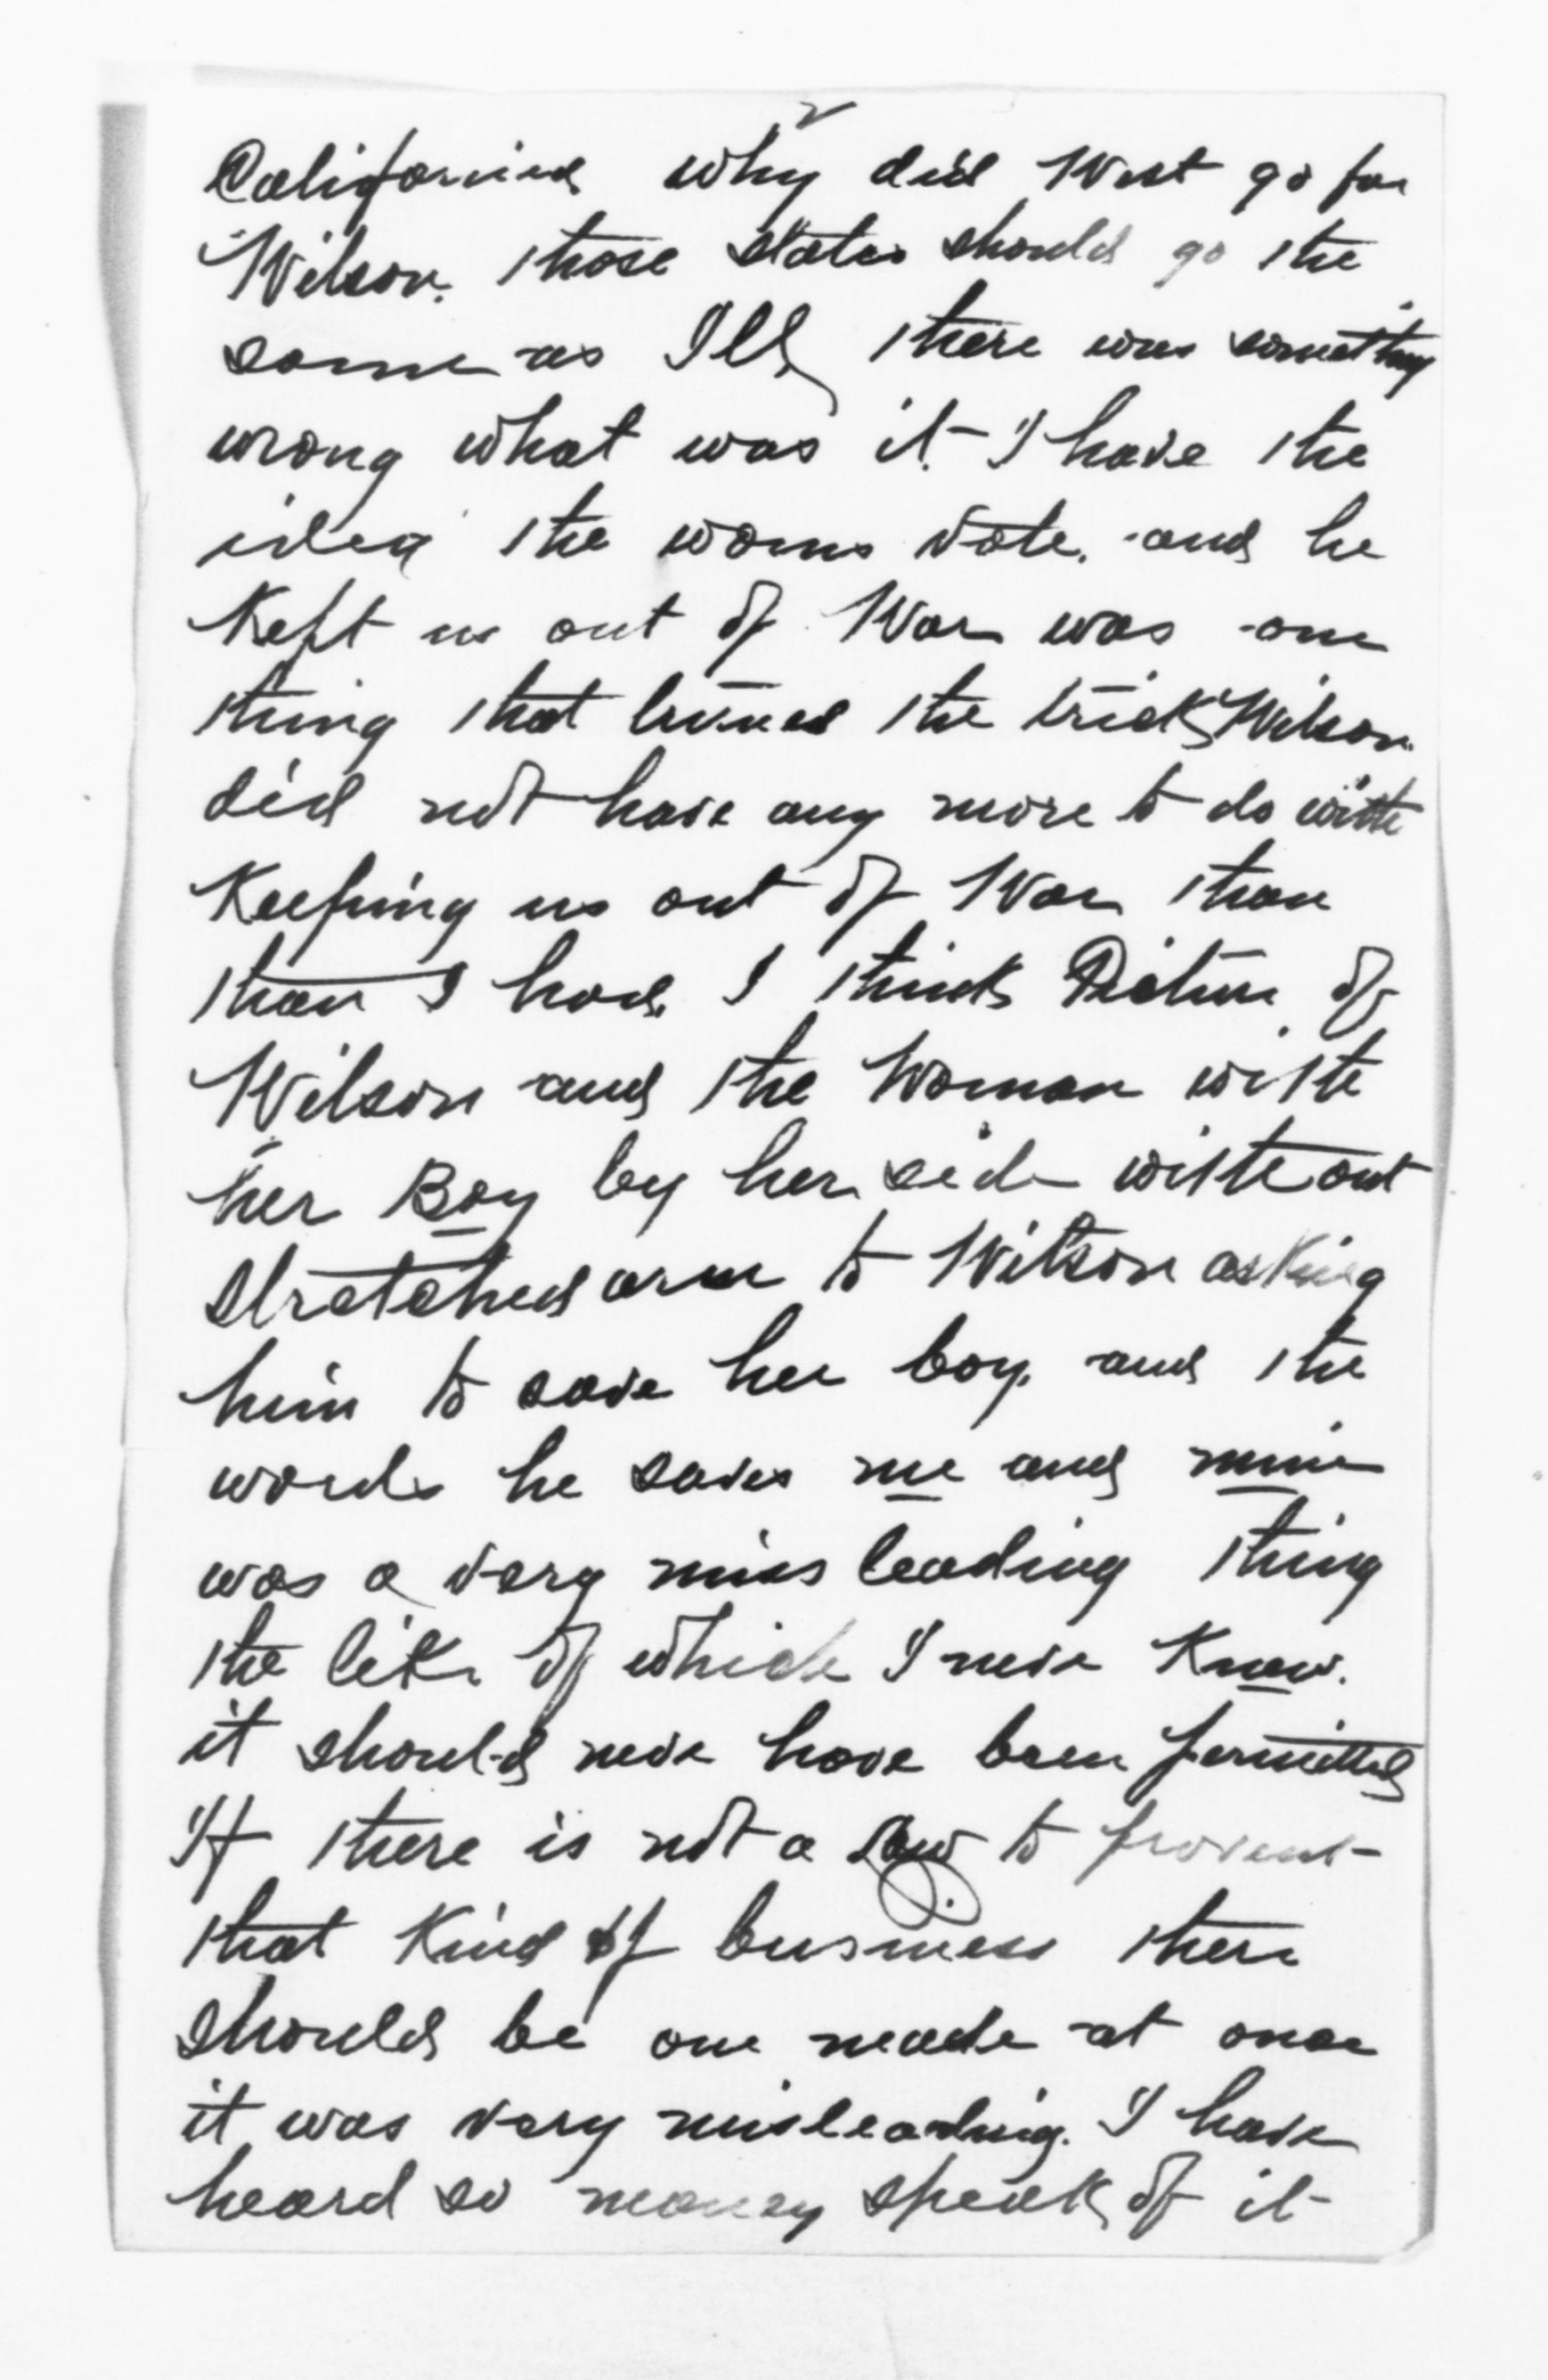 2
California why did West go for
Wilson. those states should go the
same as Ill, there was something
wrong what was it. I have the
idea the womns vote. and he
Kept us out of War was one
thing that turned the trick, Wilson
did not have any more to do with
Keeping us out of War than
than I had. I think Picture of
Wilson and the Woman with
her Boy by her side with out
stretched arm to Wilson asking
him to save her boy. and the
words he saves me and mine
was a very miss leading thing
the like of which I neve Knew.
it should neve have been permitted
If there is not a law to prevent
that Kind of business there
should be one made at once
it was very misleading. I have
heard so maney speak of it